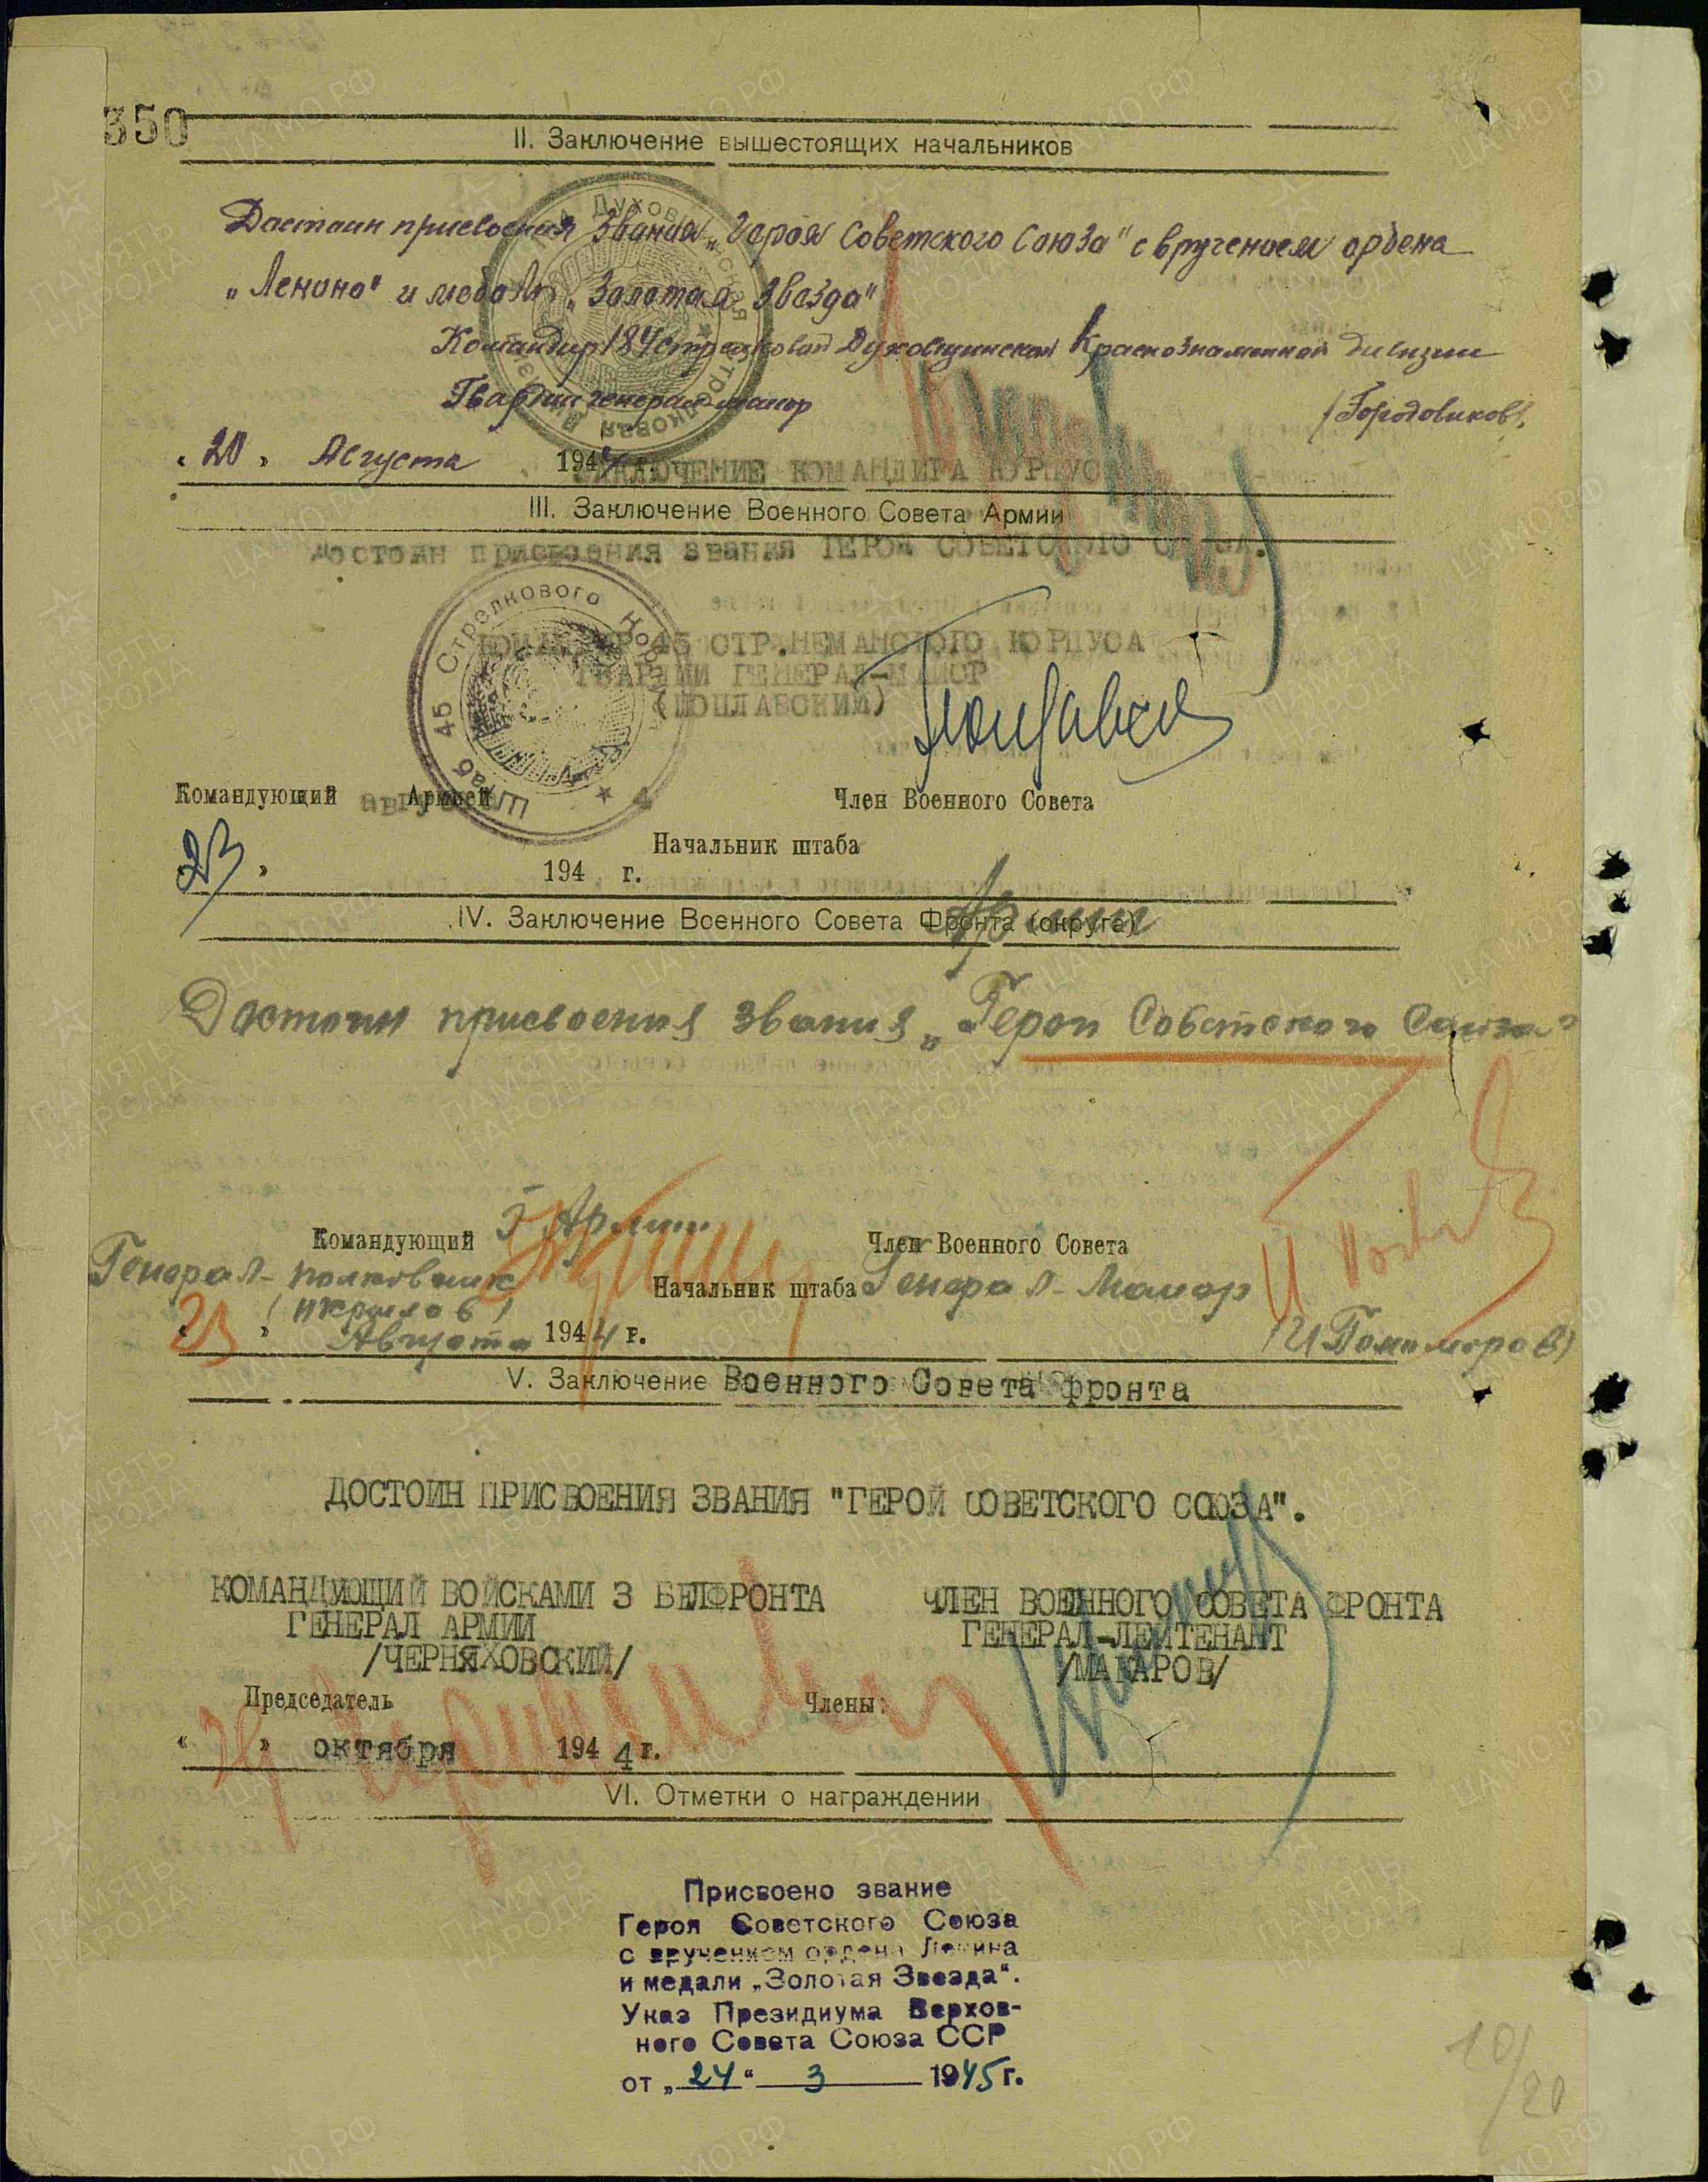 350
II. Заключение вышестоящих начальников
Достоин присвоения звания „Героя Советского Союза" с вручением ордена
„Ленина" и медали „Золотая Звезда"
Командир 184 стрелковой Духовщинской Краснознаменной дивизии
Гвардии генерал-майор
/Городовиков/.
„20" Августа 1944
ЗАКЛЮЧЕНИЕ КОМАНДИРА КОРПУСА
III. Заключение Военного Совета Армии
достоин присвоения звания ГЕРОЯ СОВЕТСКОГО СОЮЗА.
КОМАНДИР 45 СТР.НЕМАНСКОГО КОРПУСА
ГВАРДИИ ГЕНЕРАЛ-МАЙОР
(ПОПЛАВСКИЙ)
Штаб 45 Стрелкового
Командующий Армией
Член Военного Совета
августа 4
Начальник штаба
23 " 194 г.
IV. Заключение Военного Совета Фронта (округа)
Армии
Достоин присвоения звания „Герой Советского Союза"
Командующий 5 Армии
Член Военного Совета
Генерал-полковник
Начальник штаба Генерал-Майор
(Крылов)
(И Пономарев)
23 " Августа 1944 г.
V. Заключение Военного Совета фронта
ДОСТОИН ПРИСВОЕНИЯ ЗВАНИЯ "ГЕРОЙ СОВЕТСКОГО СОЮЗА".
КОМАНДУЮЩИЙ ВОЙСКАМИ 3 БЕЛФРОНТА
ЧЛЕН ВОЕННОГО СОВЕТА ФРОНТА
ГЕНЕРАЛ АРМИИ
ГЕНЕРАЛ-ЛЕЙТЕНАНТ
/ЧЕРНЯХОВСКИЙ/
/МАКАРОВ/
Председатель
Члены:
" " октября 1944 г.
VI. Отметки о награждении
Присвоено звание
Героя Советского Союза
с вручением ордена Ленина
и медали „Золотая Звезда".
Указ Президиума Верхов-
ного Совета Союза ССР
от „24" 3 1945 г.
10/20
ПАМЯТЬ НАРОДА
ЦАМО.РФ